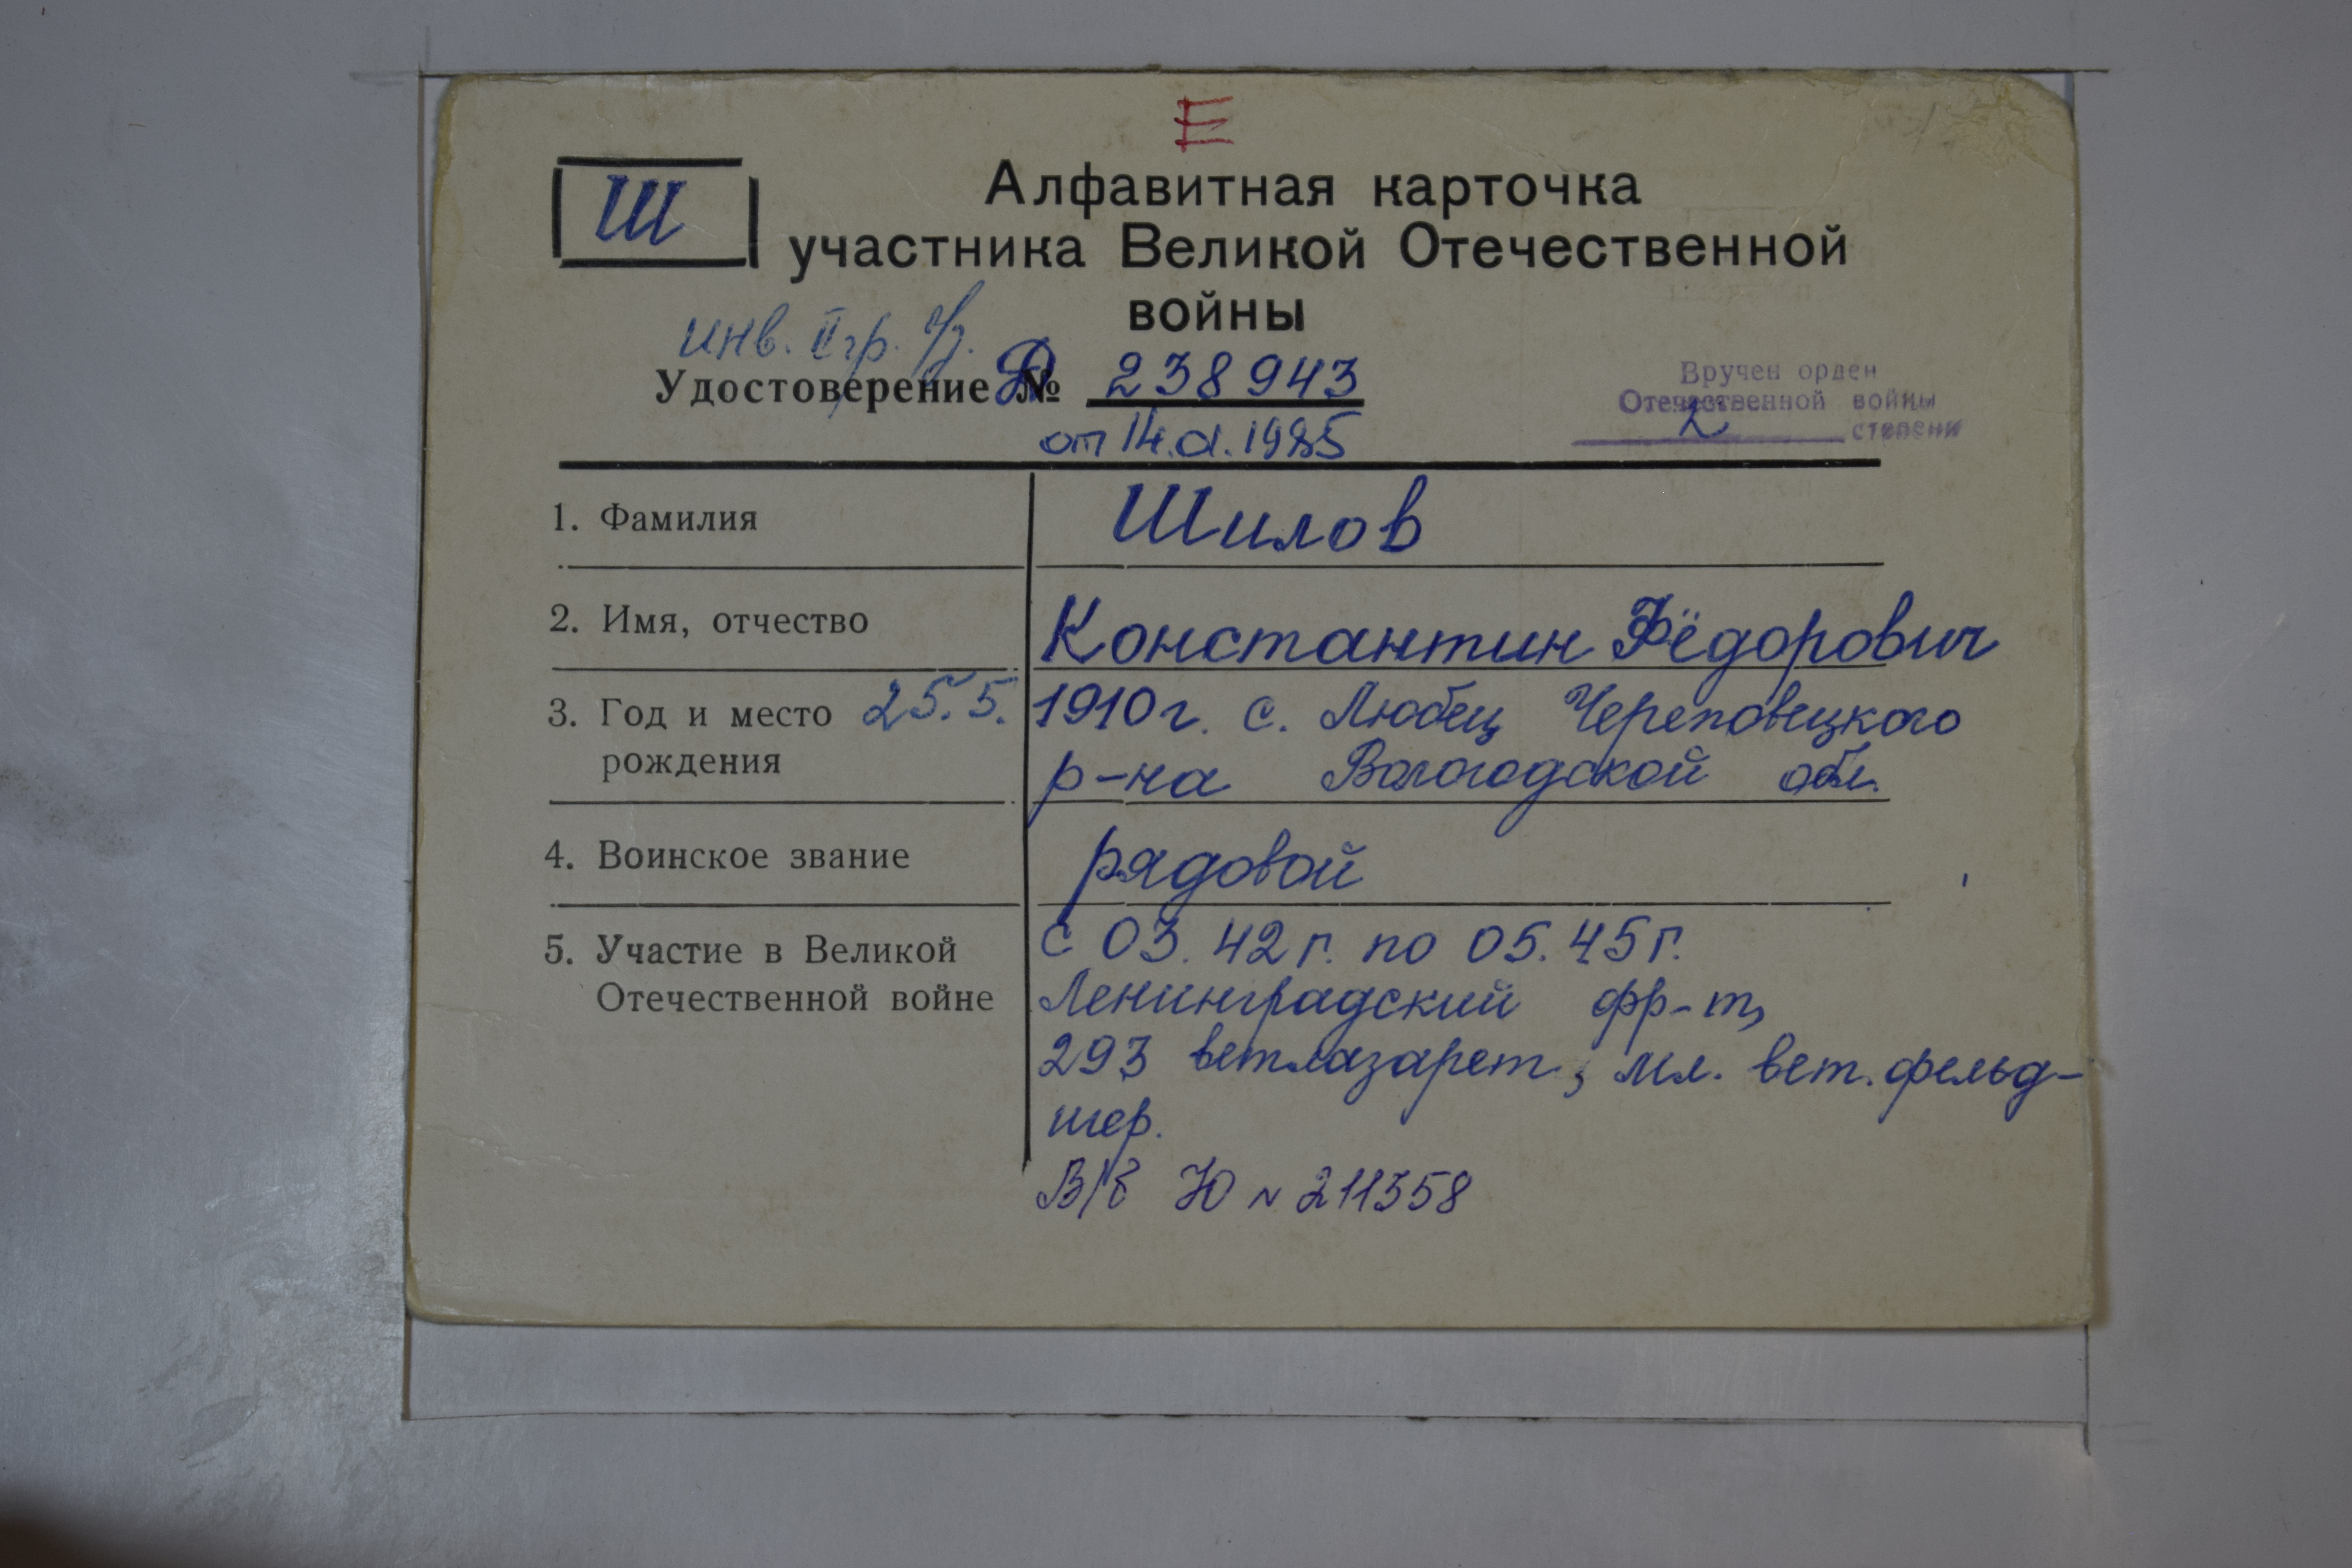 Е
Ш
Алфавитная карточка
участника Великой Отечественной
войны
инв. II гр.
Удостоверение Д № 238943
от 14.01.1985
Вручен орден
Отечественной войны
2 степени
1. Фамилия
Шилов
2. Имя, отчество
Константин Фёдорович
3. Год и место
рождения
25.5. 1910 г. с. Любец Череповецкого
р-на Вологодской обл.
4. Воинское звание
рядовой
5. Участие в Великой
Отечественной войне
с 03.42 г. по 05.45 г.
Ленинградский фр-т,
293 ветлазарет, мл. вет. фельд-
шер.
В/б Ю N 211358